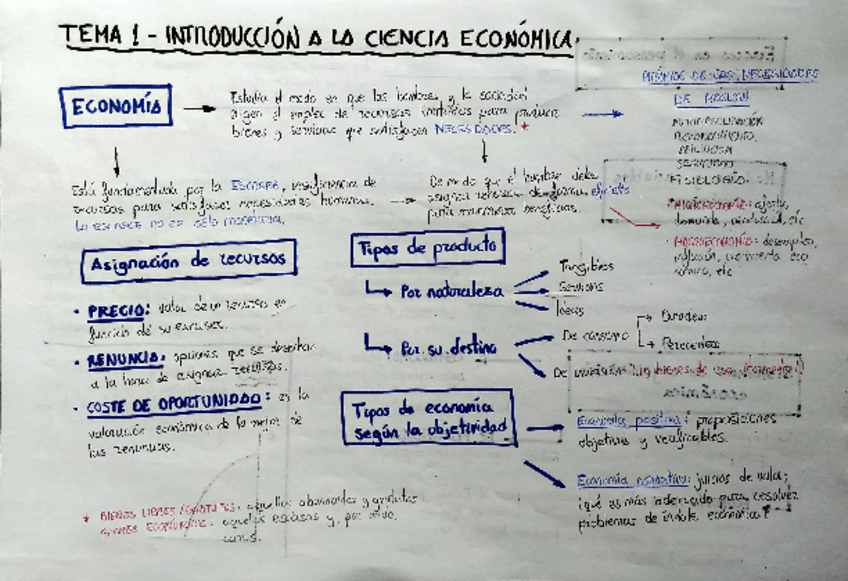 TEMA 1 - INTRODUCCIÓN A LA CIENCIA ECONÓMICA.
ECONOMÍA
Estudia el modo en que los hombres y la sociedad
eligen el empleo de recursos limitados para producir
bienes y servicios que satisfacen NECESIDADES. *
PIRÁMIDE DE LAS NECESIDADES
DE MASLOW
AUTORREALIZACIÓN
RECONOCIMIENTO
AFILIACIÓN
SEGURIDAD
FISIOLOGÍA
Está fundamentada por la ESCASEZ, insuficiencia de
recursos para satisfacer necesidades humanas.
La escasez no es sólo monetaria.
De modo que el hombre debe
asignar recursos de forma eficiente
para maximizar beneficios.
* MICROECONOMÍA: oferta,
demanda, etc
• MACROECONOMÍA: desempleo,
inflación, crecimiento eco
nómico, etc
Asignación de recursos
• PRECIO: valor de un recurso en
función de su escasez.
• RENUNCIA: opciones que se desechan
a la hora de asignar recursos.
• COSTE DE OPORTUNIDAD: es la
valoración económica de la mejor de
las renuncias.
Tipos de producto
Por naturaleza
Tangibles
Servicios
Ideas
Por su destino
De consumo
Duraderos
Perecederos
De inversión
Tipos de economía
según la objetividad
Economía positiva: proposiciones
objetivas y verificables.
Economía normativa: juicios de valor;
¿qué es más adecuado para resolver
problemas de índole económica?
* BIENES LIBRES/GRATUITOS: aquellos abundantes y gratuitos
BIENES ECONÓMICOS: aquellos escasos y, por ello,
caros.